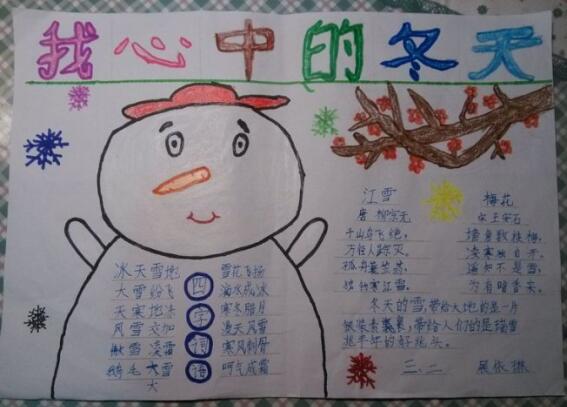 我心中的冬天
冰天雪地
大雪纷飞
天寒地冻
风雪交加
傲雪凌霜
鹅毛大雪
大
四字词语
雪花飞扬
滴水成冰
寒冬腊月
漫天风雪
寒风刺骨
呵气成霜
江雪
唐 柳宗元
千山鸟飞绝,
万径人踪灭。
孤舟蓑笠翁,
独钓寒江雪。
梅花
宋 王安石
墙角数枝梅,
凌寒独自开。
遥知不是雪,
为有暗香来。
冬天的雪,带给大地的是一片
银装素裹,带给人们的是瑞雪
兆丰年的好兆头。
三、二